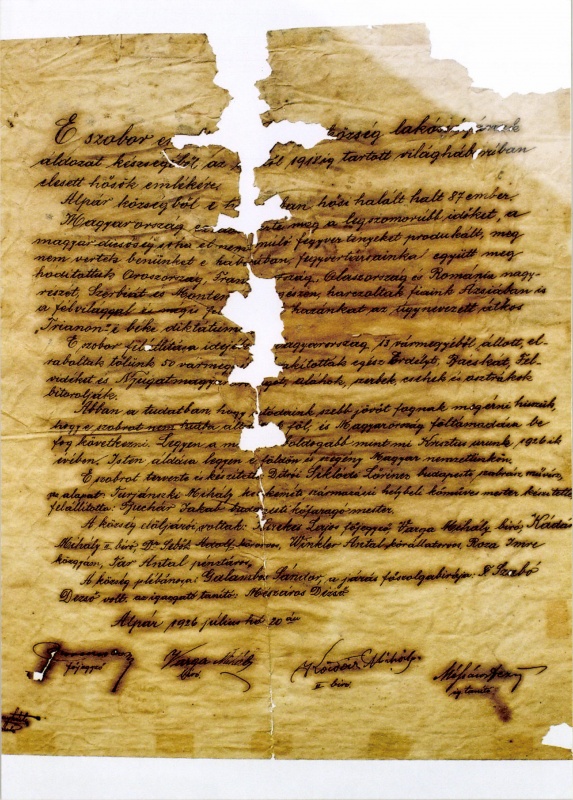 E szobor község lakói
áldozat készségéből, az 1918ig tartott világháborúban
elesett hősök emlékére
Alpár községből e ban hősi halált halt 87 ember.
Magyarország meg a legszomorúbb időket, a
magyar dicsőség soha el nem muló fegyver tényeket produkált, meg
nem vertek bennünket e háborúban, fegyvertársainkkal együtt meg
hódítottuk Oroszország, Olaszország és Románia nagy-
részét, Szerbiát és Monten harczoltak fiaink Ázsiában is
a félvilággal és mégis hazánkat az úgynevezett átkos
Trianon-i béke diktátum
E szobor felállítása idején Magyarország 13 vármegyéből állott, el-
raboltak tőlünk 50 várme egész Erdélyt, Bácskát, Fel-
vidéket és Nyugatmagy oláhok, szerbek csehek és osztrákok
bitorolják.
Abban a tudatban, hogy utódaink szebb jövőt fognak megérni hiszük,
hogy e szobrot nem hiába föl, és Magyarország föltámadása be
fog következni. Legyen a boldogabb mint mi Krisztus urunk 1926 ik
évében. Isten áldása legyen e földön és szegény Magyar nemzetünkön.
E szobrot tervezte és készítette Siklódi Lőrincz budapesti szobrász művész,
az alapot Turjánszki Mihály származású helybeli kőműves mester készítette
felállította Puchár Jakab kőfaragó mester.
A község elöljárói voltak: Lajos főjegyző Varga Mihály bíró, Kádár
Mihály II. bíró, Dr Sebők orvos, Winkler Antal körállatorvos, Roza Imre
közgyám, Tar Antal pénztáros,
A község plébánosa: Galambos Sándor, a járás főszolgabírája: Dr Szabó
Dezső volt. az igazgató tanító: Mészáros Dezső
Alpár 1926 július hó 20 án
főjegyző Varga Mihály bíró Kádár Mihály II bíró ig tanító